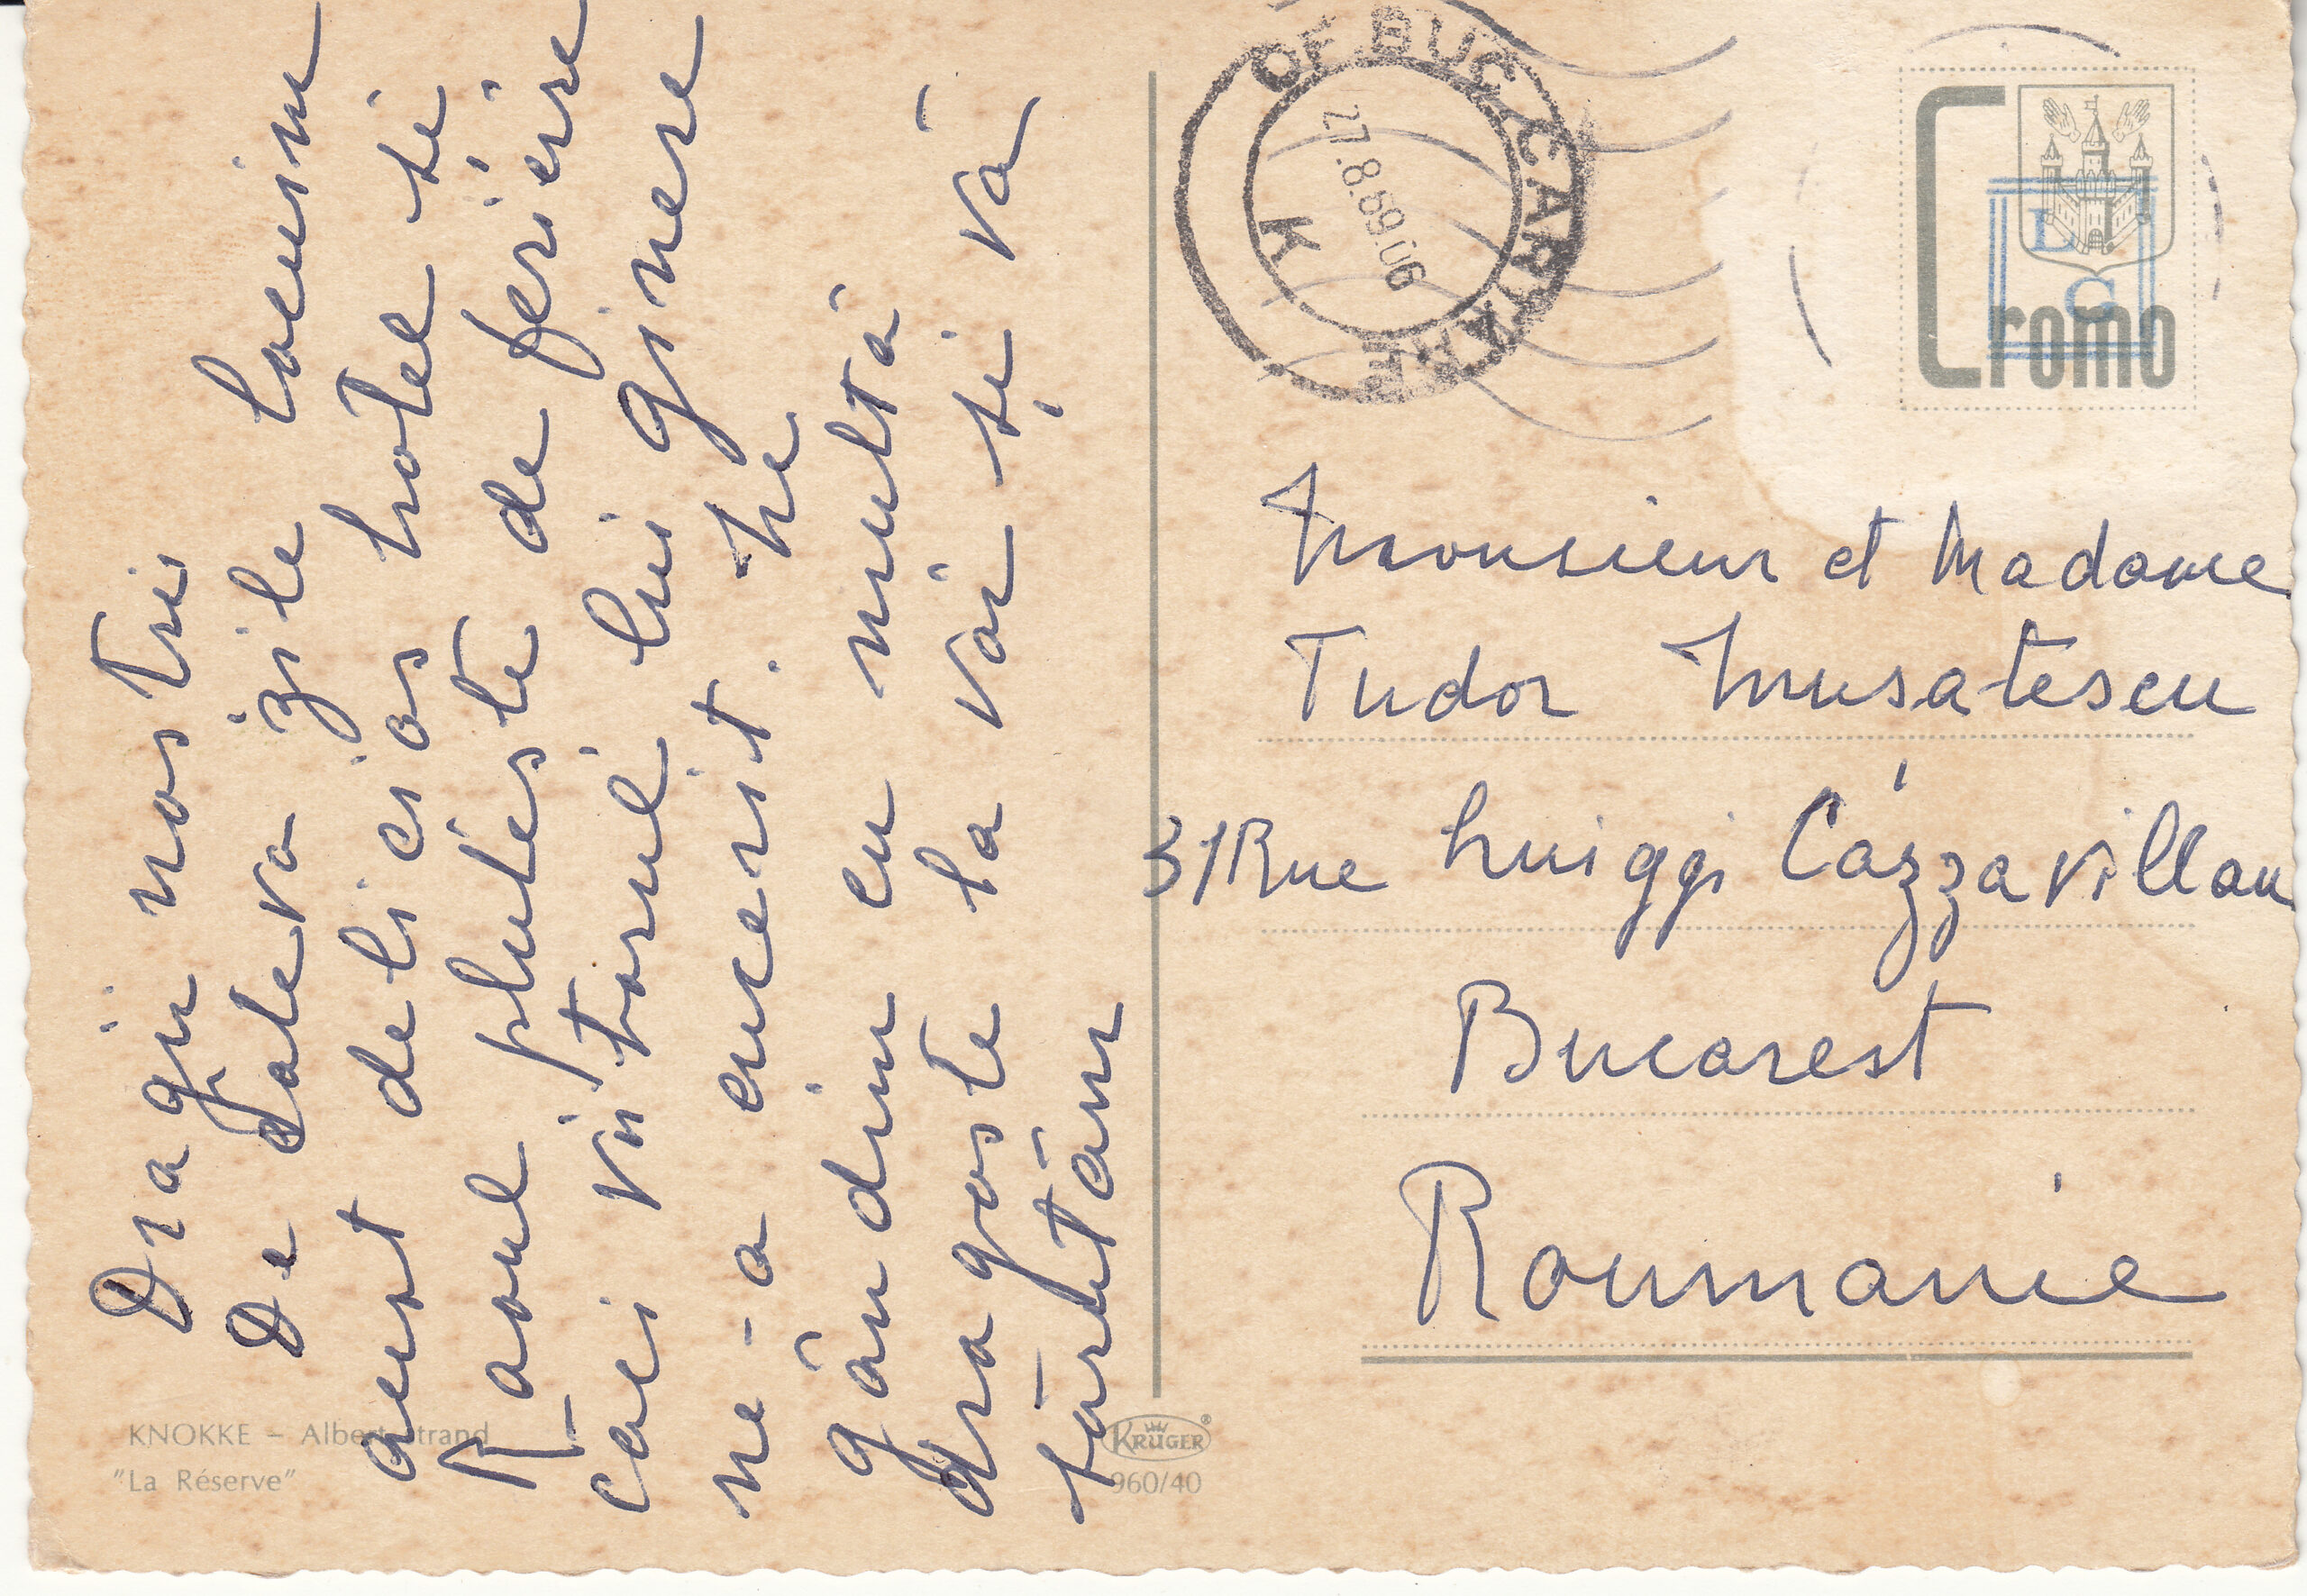 Dragii noștri
De câteva zile locuim
acest delicios hotel și
Raoul plutește de fericire
căci viitorul lui ginere
ne-a cucerit. Ne
gândim cu multă
dragoste la voi și vă
sărutăm
KNOKKE – Albertstrand
"La Réserve"
KRÜGER®
960/40
OF. BUC
CARTARE
27.8.69.06
K
L
G
Cromo
Monsieur et Madame
Tudor Musatescu
51 Rue Luiggi Cazzavillan
Bucarest
Roumanie